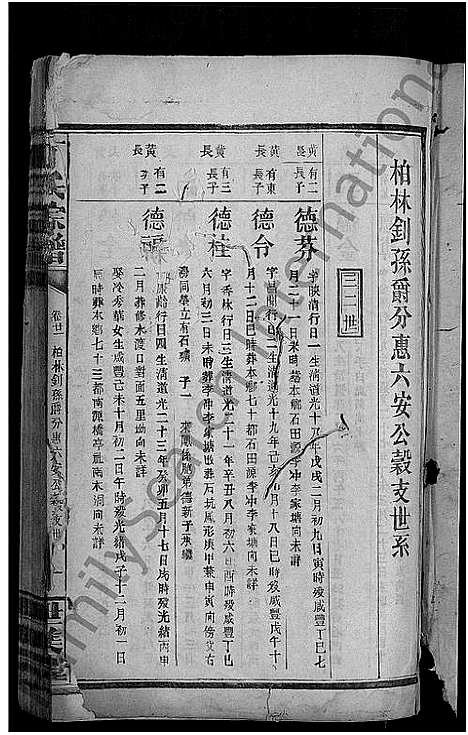 柏林釗孫爵分惠六安公穀支世系
三二世
黃長 有二長子 德芬
字映清行一生清道光十八年戊戌二月初九日寅時歿咸豐丁巳七
月二十一日未時葬本鄉石田源李冲李家塘向未詳
黃長 有東長子 德令
字昌開行二生清道光十九年己亥 月十八日巳時歿咸豐戊午十
月十二日巳時葬本鄉七十都石田源李冲李家塘向未詳
黃長 有三長子 德桂
字香林行日三生清道光二十一年辛丑八月初六日酉時歿咸豐丁巳
六月初三日未時葬李冲李家塘 葬石坑鳳形庚甲兼申寅向傍父右
灣同塋立有石墳 子一 來鳳係胞弟德新子承繼
黃長 有二 子 德
字 廣齡行日四生清道光二十三年癸卯五月十七日戌時歿光緒丙申
二月葬修水渡口對面五里 向未詳
娶冷秀華女生咸豐己未十月初二日午時歿光緒戊子十二月初一日
辰時葬本鄉七十三都南源橋亭 南木洞向未詳
氏宗譜
卷廿一 柏林釗孫爵分惠六安公穀支世 一